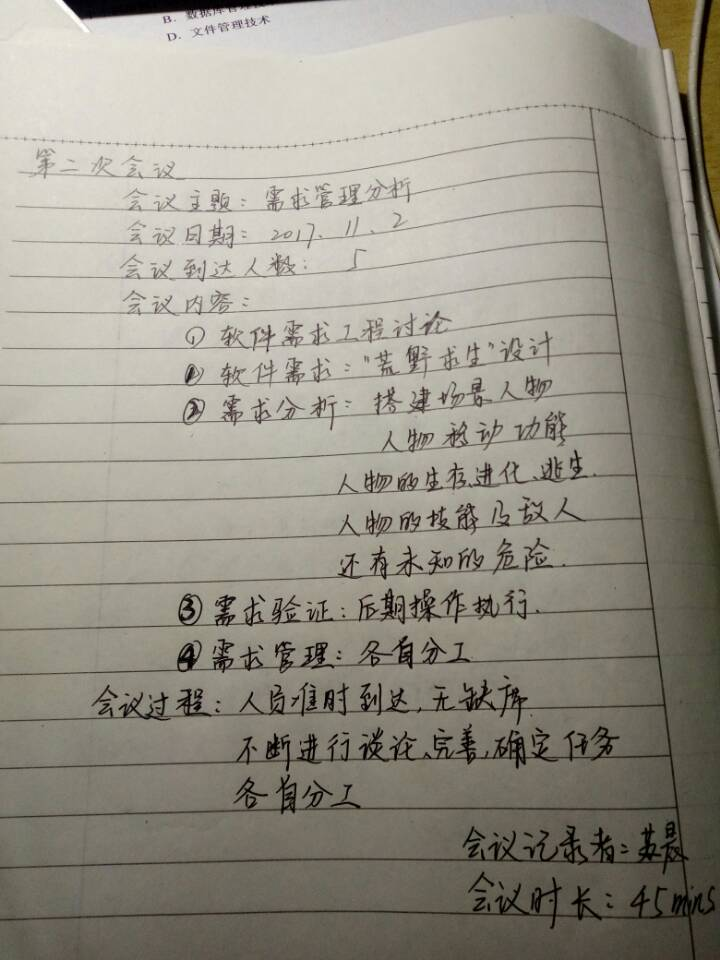 B. 数据库管理技术
D. 文件管理技术
第二次会议
会议主题: 需求管理分析
会议日期: 2017. 11. 2
会议到达人数: 5
会议内容:
① 软件需求工程讨论
② 软件需求: "荒野求生"设计
② 需求分析: 搭建场景人物
人物移动功能
人物的生存、进化、逃生.
人物的技能及敌人
还有未知的危险.
③ 需求验证: 后期操作执行.
④ 需求管理: 各自分工
会议过程: 人员准时到达, 无缺席
不断进行谈论、完善, 确定任务
各自分工
会议记录者: 苏晨
会议时长: 45 mins